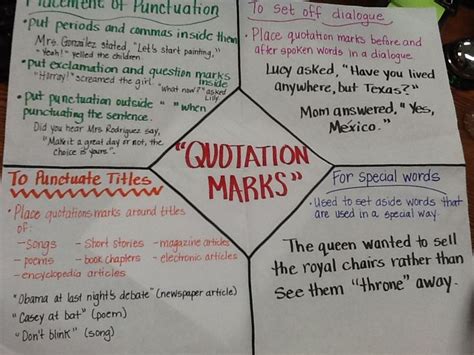 Placement of Punctuation
• put periods and commas inside them
Mrs. González stated, "Let's start painting,"
"Yeah!" yelled the children.
• put exclamation and question marks inside
"Hurray!" screamed the girl. "What now?" asked Lily.
• put punctuation outside " " when
punctuating the sentence.
Did you hear Mrs. Rodriguez say,
"Make it a great day or not, the
choice is yours".
To set off dialogue
• Place quotation marks before and
after spoken words in a dialogue
Lucy asked, "Have you lived
anywhere, but Texas?"
Mom answered, "Yes,
México."
"QUOTATION
MARKS"
To Punctuate Titles
• Place quotations marks around titles
of:
-songs - Short stories - magazine articles
-poems - book chapters - electronic articles
-encyclopedia articles
"Obama at last night's debate" (newspaper article)
"Casey at bat" (poem)
"Don't blink" (song)
For special words
• Used to set aside words that
are used in a special way.
The queen wanted to sell
the royal chairs rather than
see them "throne" away.